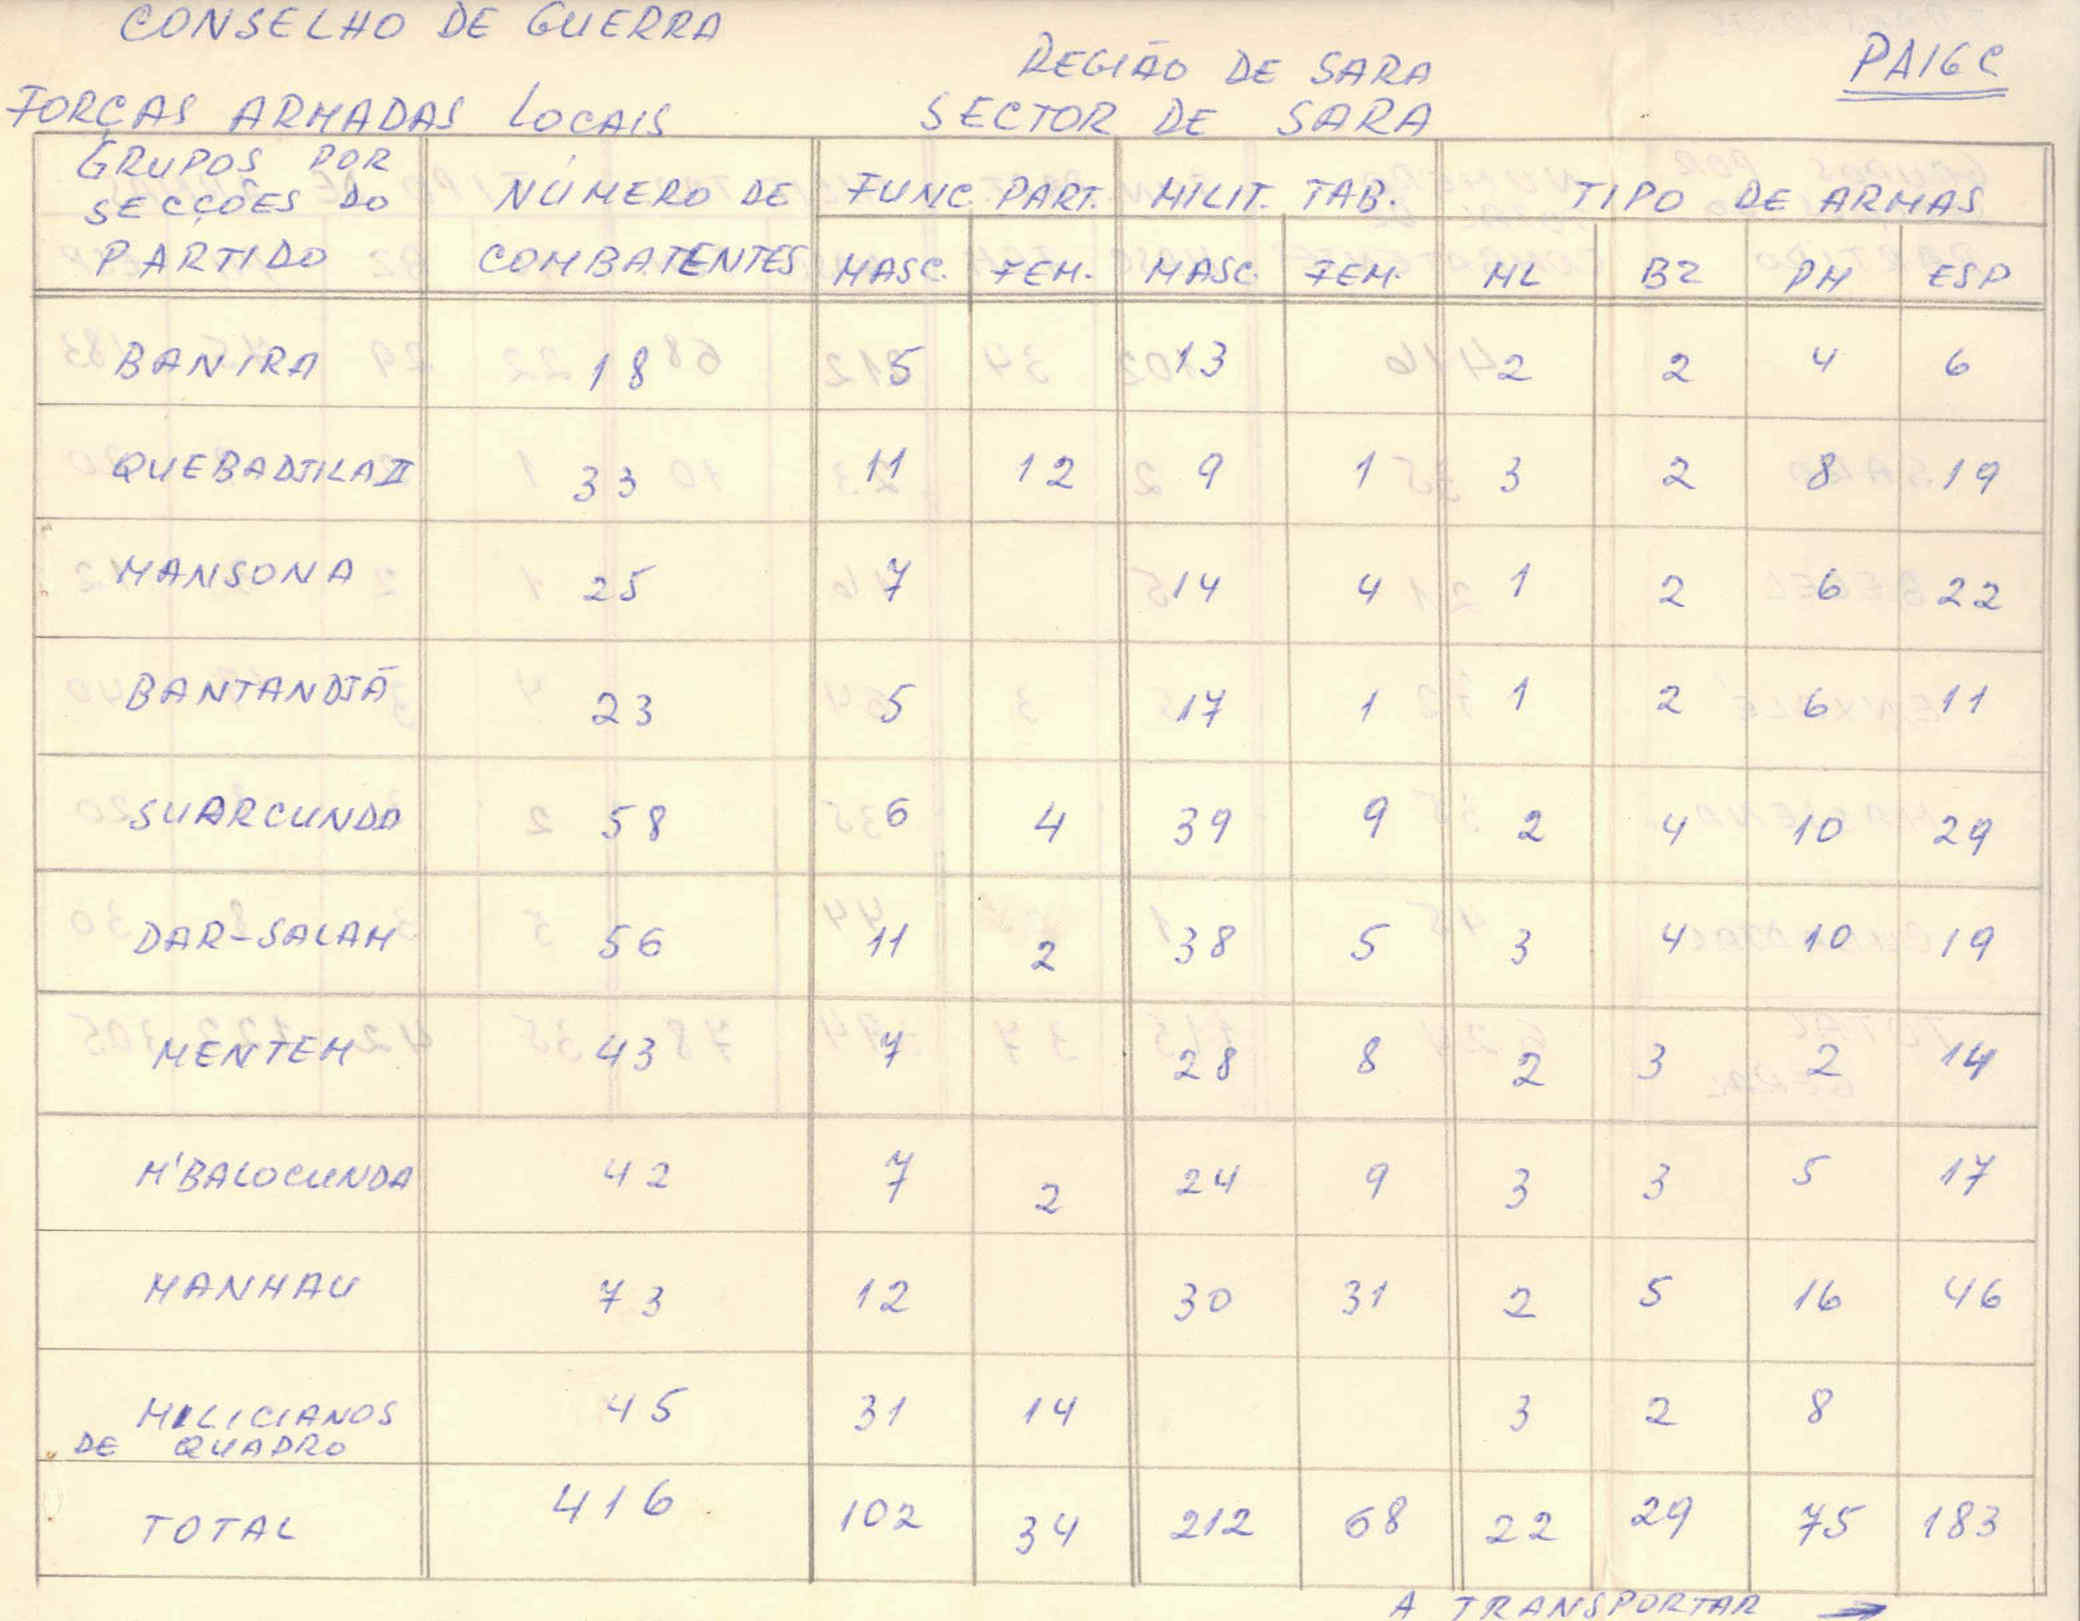 CONSELHO DE GUERRA
REGIÃO DE SARA
PAIGC
FORÇAS ARMADAS LOCAIS
SECTOR DE SARA
GRUPOS POR SECÇÕES DO PARTIDO NÚMERO DE COMBATENTES FUNC. PART. MILIT. TAB. TIPO DE ARMAS
MASC. FEM. MASC. FEM. ML BZ PM ESP
BANIRA 18 5 13 2 2 4 6
QUEBADJILA II 33 11 12 9 1 3 2 8 19
MANSONA 25 7 14 4 1 2 6 22
BANTANDJÃ 23 5 17 1 1 2 6 11
SUARCUNDA 58 6 4 39 9 2 4 10 29
DAR-SALAM 56 11 2 38 5 3 4 10 19
MENTEM 43 7 28 8 2 3 2 14
M'BALOCUNDA 42 7 2 24 9 3 3 5 17
MANHAU 73 12 30 31 2 5 16 46
MILICIANOS DE QUADRO 45 31 14 3 2 8
TOTAL 416 102 34 212 68 22 29 75 183
A TRANSPORTAR →